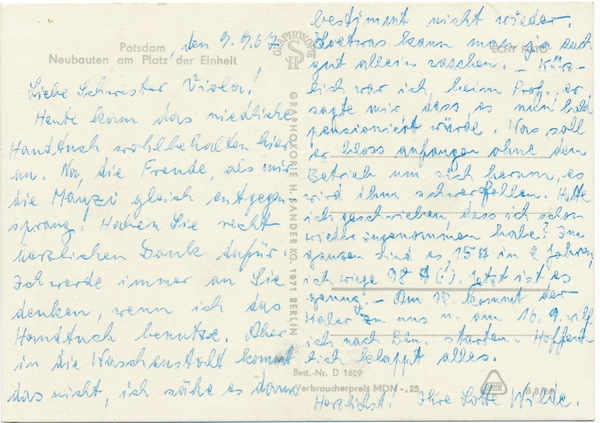 Potsdam
Neubauten am Platz der Einheit
, den 9.9.67
Liebe Schwester Viola!
Heute kam das niedliche
Handtuch wohlbehalten hier
an. Na, die Freude, als mir
die Manzi gleich entgegen
sprang! Haben Sie recht
herzlichen Dank dafür.
Ich werde immer an Sie
denken, wenn ich das
Handtuch benutze. Aber
in die Waschanstalt kommt
das nicht, ich sähe es dann
bestimmt nicht wieder.
Soetwas kann man ja auch
gut allein waschen. – Kürz-
lich war ich beim Prof., er
sagte mir, dass es nun bald
pensioniert würde. Was soll
er bloss anfangen ohne den
Betrieb um sich herum, es
wird ihm schwerfallen. Hatte
ich geschrieben, dass ich schon
wieder zugenommen habe? Im
ganzen sind es 15 in Jahren,
ich wiege 98 (!). Jetzt ist es
genug! – Am 12. kommt der
Maler zu uns u. am 16.9. will
ich nach Bln. starten. Hoffent-
lich klappt alles.
Herzlichst Ihre Lotte Wilde.
GRAPHOKOPIE
ECHT FOTO
GRAPHOKOPIE H. SANDER KG 1071 BERLIN
Best.-Nr. D 1609
Verbraucherpreis MDN -,25